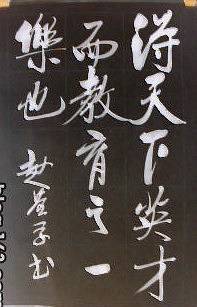 得天下英才
而教育之一
樂也
趙
子书